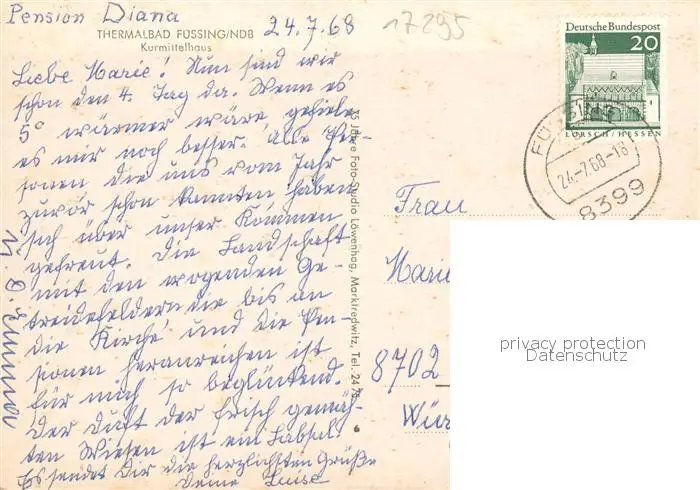 Pension Diana
24.7.68
17295
THERMALBAD FÜSSING/NDB
Kurmittelhaus
Liebe Marie! Nun sind wir
schon den 4. Tag da. Wenn es
5° wärmer wäre gefiele
es mir noch besser. Alle Per-
sonen die uns vom Jahr
zuvor schon kannten haben
sich über unser Kommen
gefreut. Die Landschaft
mit den wogenden Ge-
treidefeldern die bis an
die Kirche und die Pen-
sionen heranreichen ist
für mich so beglückend.
Der Duft der frisch gemäh-
ten Wiesen ist ein Labsal.
Es sendet Dir die herzlichsten Grüße
Deine Luise
25 Jahre Foto-Studio Löwenhag, Marktredwitz, Tel. 2475
Deutsche Bundespost
20
LORSCH/HESSEN
24.-7.68-18
8399
Frau
Marie
8702
Wür
privacy protection
Datenschutz